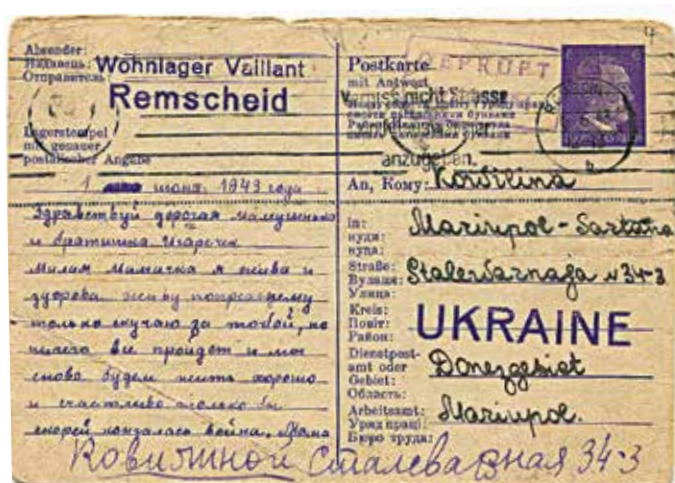 Absender:
Надавець:
Отправитель:
Wohnlager Vaillant
Remscheid
Lagerstempel
mit genauer
postalischer Angabe
1 июня 1943 года
Здравствуй дорогая мамушенька
и братишка Игаречик
Милая Мамичка я жива и
здорова живу попрежнему
только скучаю за тобой, но
ничего все пройдет и мы
снова будем жить хорошо
и счастливо только бы
скорей кончалась война, Мама
Postkarte
mit Antwort
GEPRÜFT
Vergiss nicht Strasse
anzugeben.
An, Кому:
Marinpol - Sartana
in:
куди:
куда:
Straße:
Вулиця:
Улица:
Stalewarnaja N 34-3
Kreis:
Повіт:
Район:
UKRAINE
Dienstpost-
amt oder
Gebiet:
Область:
Donezgebiet
Arbeitsamt:
Уряд праці:
Бюро труда:
Mariupol.
Сталеварная 34-3